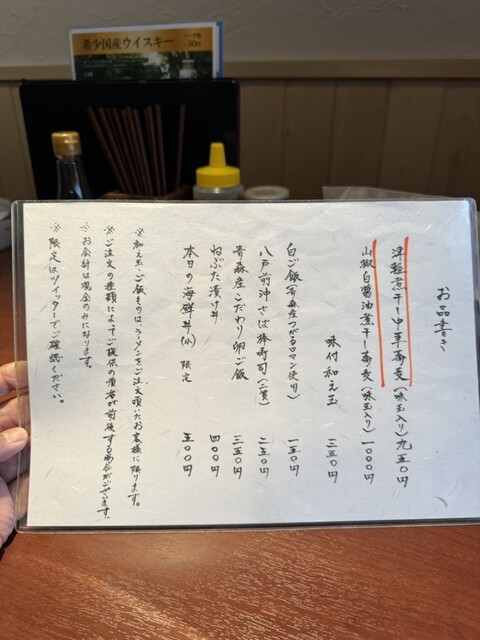 希少国産ウイスキー
お品書き
津軽煮干し中華蕎麦(味玉入り)九五〇円
山椒白醤油煮干し蕎麦(味玉入り)一〇〇〇円
味付和え玉 二五〇円
白ご飯(青森産つがるロマン使用) 一五〇円
八戸前沖さば棒寿司(二貫) 二五〇円
青森産こだわり卵ご飯 三五〇円
ねぶた漬け丼 四〇〇円
本日の海鮮丼(小) 限定 五〇〇円
※和え玉・ご飯ものは、ラーメンをご注文頂いたお客様に限ります。
※ご注文の種類によってご提供の順番が前後する場合がございます。
※お会計は現金のみになります。
※限定はツイッターでご確認ください。